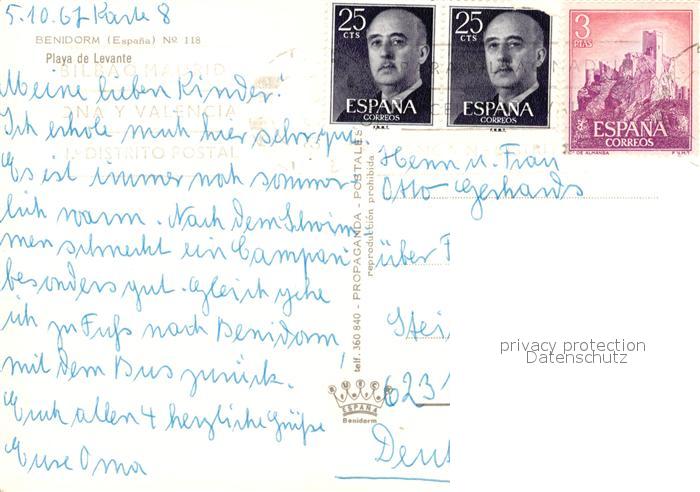 5.10.67 Karte 8
BENIDORM (España) Nº 118
Playa de Levante
BILBAO MADRID
ONA Y VALENCIA
DISTRITO POSTAL
Meine lieben Kinder!
Ich erhole mich hier sehr gut.
Es ist immer noch sommer-
lich warm. Nach dem Schwim-
men schmeckt ein Campari
besonders gut. Gleich gehe
ich zu Fuß nach Benidorm,
mit dem Bus zurück.
Euch allen 4 herzliche Grüße
Eure Oma
telf. 360 840 - PROPAGANDA - POSTALES
reproducción prohibida
ESPAÑA
Benidorm
25
CTS
ESPAÑA
CORREOS
F.N.M.T.
25
CTS
ESPAÑA
CORREOS
F.N.M.T.
3
PTAS
ESPAÑA
CORREOS
DE ALMANSA F.N.M.T.
Herrn u. Frau
Otto Gerhards
über F
Stei
623
Deut
privacy protection
Datenschutz